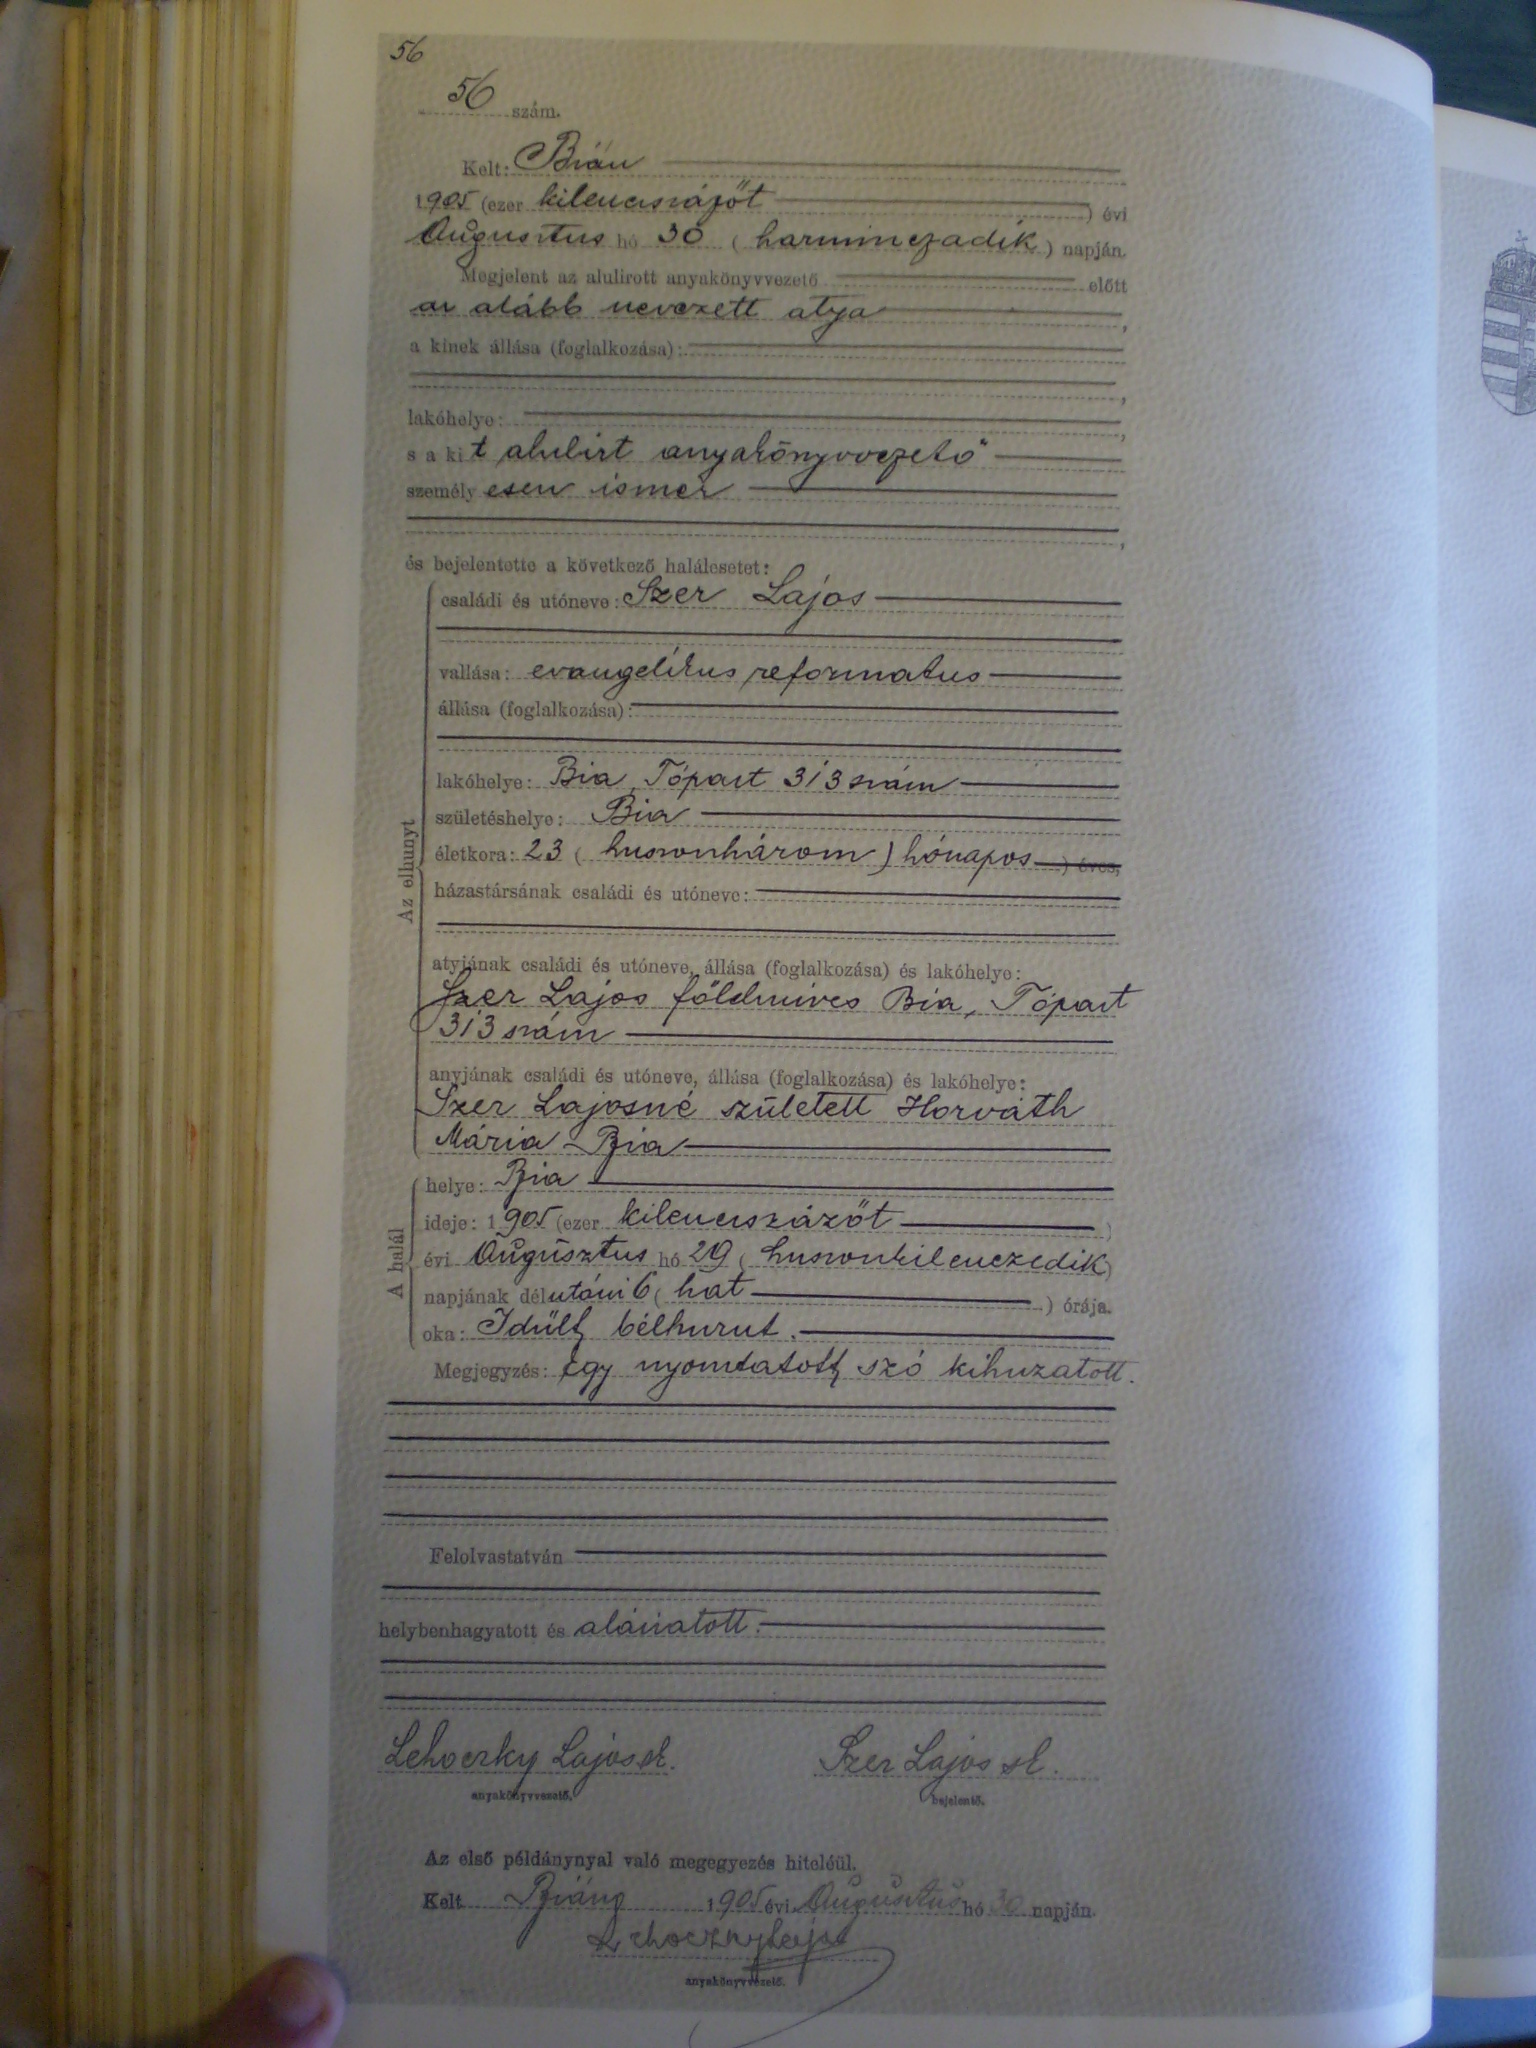 56
56 szám.
Kelt: Bián
1905 (ezer kilencszázőt ) évi
Augusztus hó 30 ( harminczadik ) napján.
Megjelent az alulirott anyakönyvvezető előtt
az alább nevezett atya ,
a kinek állása (foglalkozása):
,
lakóhelye: ,
s a kit alulirt anyakönyvvezető
személyesen ismer
,
és bejelentette a következő halálesetet:
családi és utóneve: Szer Lajos
vallása: evangelikus reformatus
állása (foglalkozása):
lakóhelye: Bia, Tópart 313 szám
születéshelye: Bia
életkora: 23 ( huszonhárom ) hónapos ) éves,
Az elhunyt
házastársának családi és utóneve:
atyjának családi és utóneve, állása (foglalkozása) és lakóhelye:
Szer Lajos földmives Bia, Tópart
313 szám
anyjának családi és utóneve, állása (foglalkozása) és lakóhelye:
Szer Lajosné született Horváth
Mária Bia
helye: Bia
ideje: 1905 (ezer kilencszázőt )
évi Augusztus hó 29 ( huszonkilenczedik )
A halál
napjának délutáni 6 ( hat ) órája.
oka: Idült bélhurut.
Megjegyzés: Egy nyomtatott szó kihuzatott.
Felolvastatván
helybenhagyatott és aláiratott.
Lehoczky Lajos sk. Szer Lajos sk.
anyakönyvvezető. bejelentő.
Az első példánynyal való megegyezés hiteléül.
Kelt Bián 1905 évi Augusztus hó 30 napján.
Lehoczky Lajos
anyakönyvvezető.